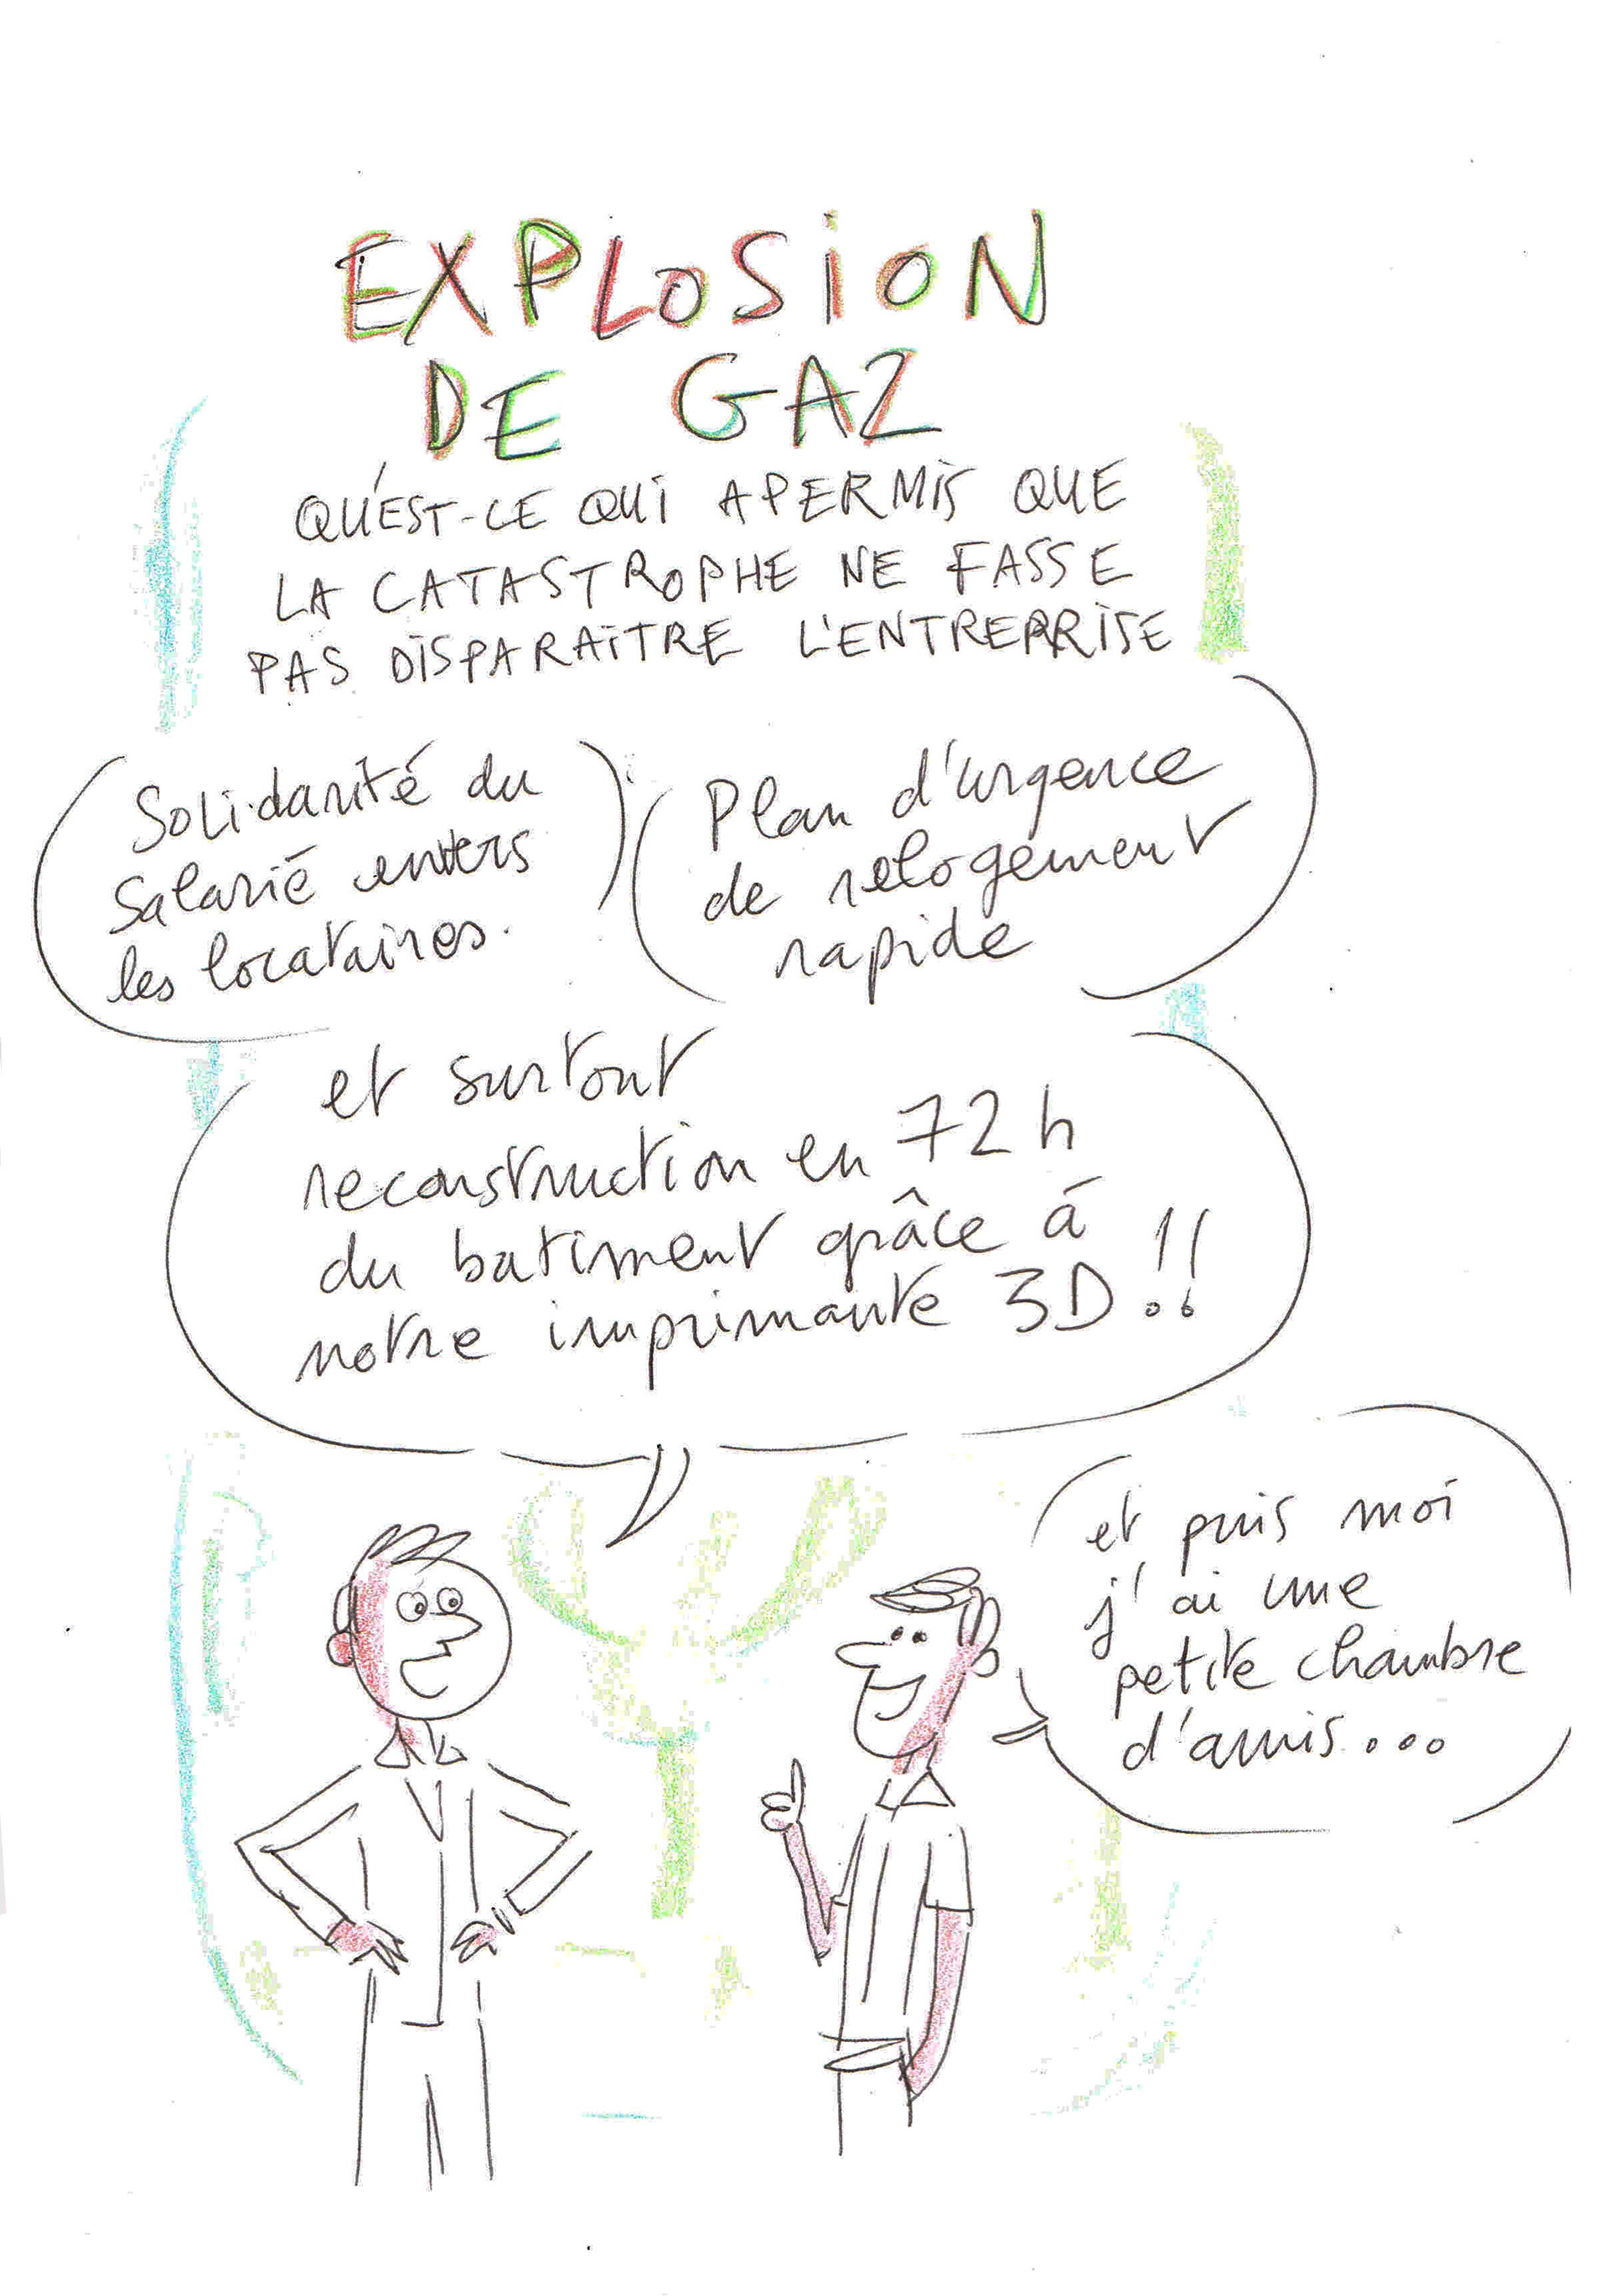 EXPLOSION
DE GAZ
QU'EST-CE QUI A PERMIS QUE
LA CATASTROPHE NE FASSE
PAS DISPARAITRE L'ENTREPRISE
Solidarité du
salarié envers
les locataires.
Plan d'urgence
de relogement
rapide
et surtout
reconstruction en 72h
du batiment grâce à
notre imprimante 3D!!
et puis moi
j'ai une
petite chambre
d'amis...